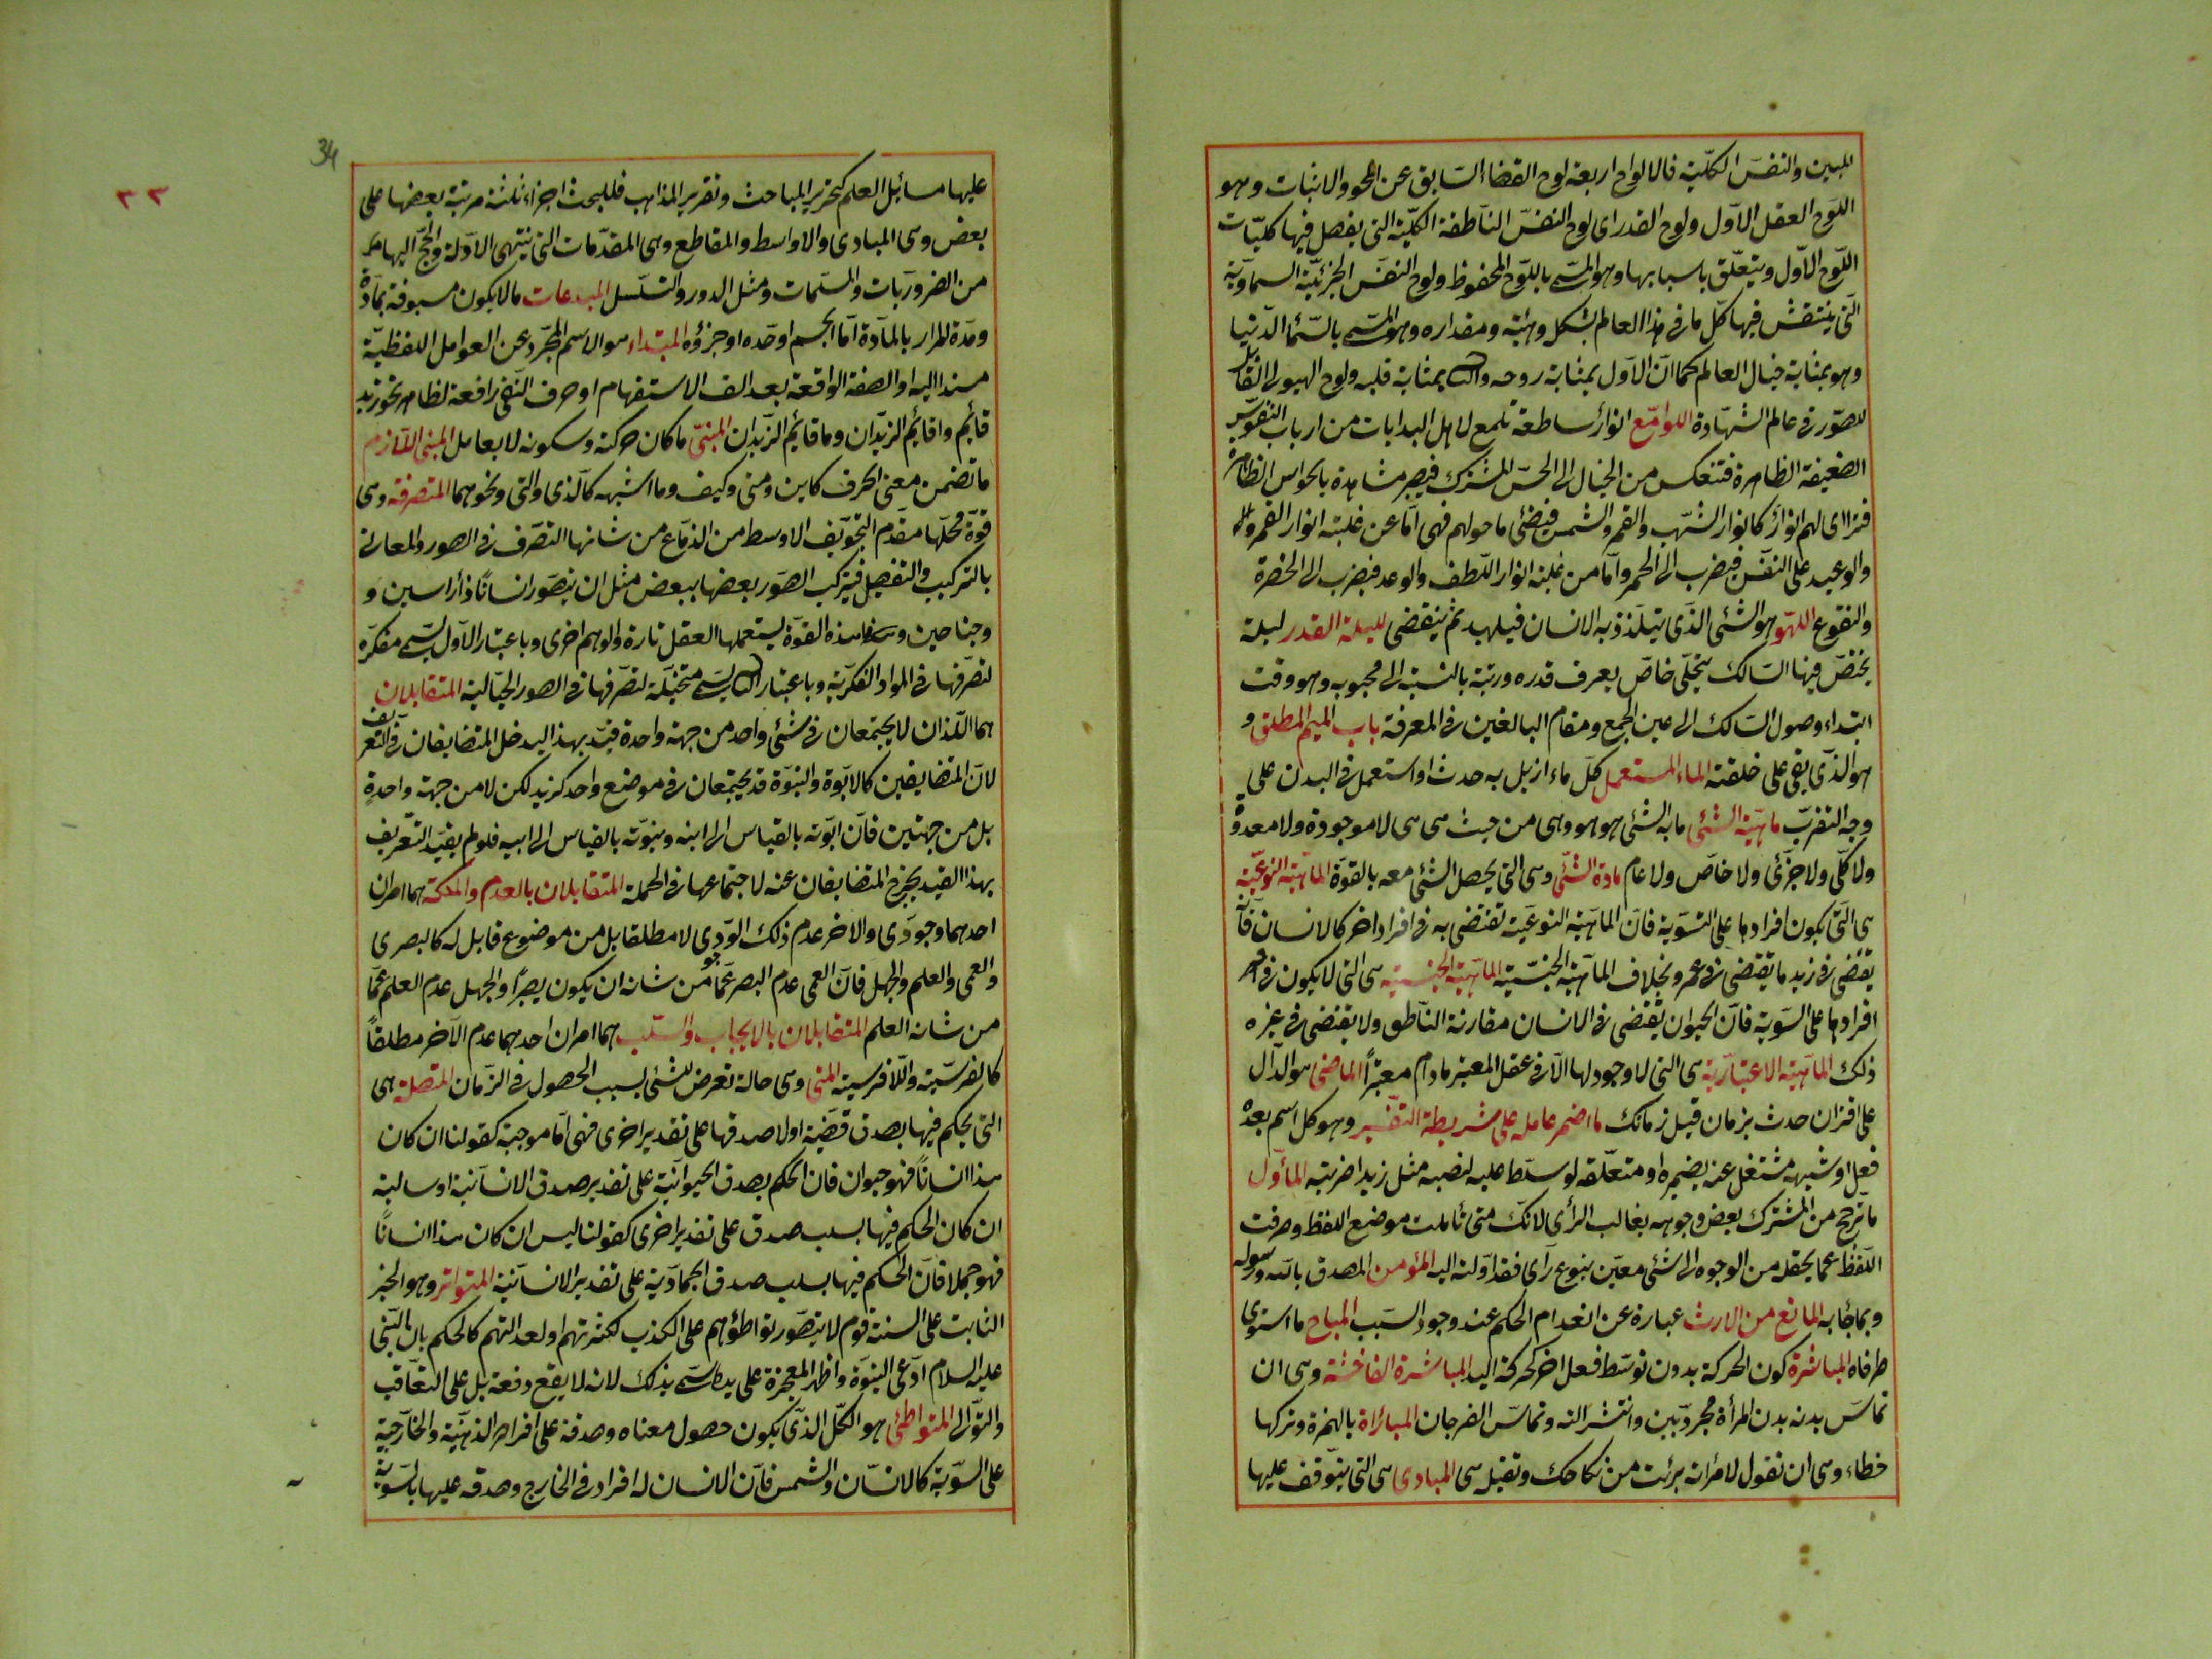 المبين والنفس الكلية فالالواح اربعة لوح القضاء السابق عن المحو والاثبات وهو
اللوح العقل الاول ولوح القدر اى لوح النفس الناطقة الكلية التى يفصل فيها كليات
اللوح الاول ويتعلق باسبابها وهو المسمى باللوح المحفوظ ولوح النفس الجزئية السماوية
التى ينتقش فيها كل ما فى هذا العالم بشكله وهيئته ومقداره وهو المسمى بالسماء الدنيا
وهو بمثابة خيال العالم كما ان الاول بمثابة روحه والثانى بمثابة قلبه ولوح الهيولى القابل
للصور فى عالم الشهادة اللوامع انوار ساطعة تلمع لاهل البدايات من ارباب النفوس
الضعيفة الظاهرة فتنعكس من الخيال الى الحس المشترك فيصير مشاهدة بالحواس الظاهرة
فتراءى لهم انوار كانوار الشهب والقمر والشمس فيضئ ما حولهم فهى اما عن غلبة انوار القهر
والوعيد على النفس فيضرب الى الحمرة واما من غلبة انوار اللطف والوعد فيضرب الى الخضرة
والفقوع اللهو هو الشئ الذى يتلذذ به الانسان فيلهيه ثم ينقضى ليلة القدر ليلة
يختص فيها السالك بتجلى خاص يعرف قدره ورتبة بالنسبة الى محبوبه وهو وقت
ابتداء وصول السالك الى عين الجمع ومقام البالغين فى المعرفة باب الميم المطلق و
هو الذى بقى على خلقته الماء المستعمل كل ماء ازيل به حدث او استعمل فى البدن على
وجه التقرب ماهية الشئ ما به الشئ هو هو وهى من حيث هى هى لا موجودة ولا معدومة
ولا كلى ولا جزئى ولا خاص ولا عام مادة الشئ وهى التى يحصل الشئ معه بالقوة الماهية النوعية
هى التى يكون افرادها على التسوية فان الماهية النوعية تقتضى به فى افراد اخر كالانسان فانه
يقتضى فى زيد ما يقتضى فى عمرو بخلاف الماهية الجنسية الماهية الجنسية هى التى لا يكون فى
افرادها على السوية فان الحيوان يقتضى فى الانسان مقارنة الناطق ولا يقتضى فى غيره
ذلك الماهية الاعتبارية هى التى لا وجود لها الا فى عقل المعتبر ما دام معتبرا الماضى هو الدال
على اقتران حدث بزمان قبل زمانك ما اضمر عامله على شريطة التفسير وهو كل اسم بعده
فعل او شبهه مشتغل عنه بضميره او متعلقه لو سلط عليه لنصبه مثل زيدا ضربته المأول
ما ترجح من المشترك بعض وجوهه بغالب الرأى لانك متى تأملت موضع اللفظ وصرفت
اللفظ عما يحتمله من الوجوه الى شئ معين بنوع رأى فقد اولته اليه المؤمن المصدق بالله ورسوله
وبما جاء به المانع من الارث عبارة عن انعدام الحكم عند وجود السبب المباح ما استوى
طرفاه المباشرة كون الحركة بدون توسط فعل اخر كحركة اليد المباشرة الفاحشة وهى ان
تماس بدنه بدن المرأة مجردين وانتشر آلته وتماس الفرجان المبارأة بالهمزة وتركها
خطاء وهى ان تقول لامرأته برئت من نكاحك وتقبله هى المبادى هى التى يتوقف عليها
34
٢٢
عليها مسائل العلم كتحرير المباحث وتقرير المذاهب فللبحث اجزاء ثلثة مرتبة بعضها على
بعض وهى المبادى والاواسط والمقاطع وهى المقدمات التى ينتهى الادلة والحجج اليها
من الضروريات والمسلمات ومثل الدور والتسلسل المبدعات ما لا يكون مسبوقة بمادة
ومدة المراد بالمادة اما الجسم او حده او جزؤه المبتداء هو الاسم المجرد عن العوامل اللفظية
مسندا اليه او الصفة الواقعة بعد الف الاستفهام او حرف النفى رافعة لظاهر نحو زيد
قائم واقائم الزيدان وما قائم الزيدان المبنى ما كان حركته وسكونه لا بعامل المبنى اللازم
ما تضمن معنى الحرف كاين ومتى وكيف وما اشبهه كالذى والتى ونحوهما المتصرفة وهى
قوة محلها مقدم التجويف الاوسط من الدماغ من شانها التصرف فى الصور والمعانى
بالتركيب والتفصيل فيتركب الصور بعضها ببعض مثل ان يتصور انسانا ذا رأسين و
وجناحين وهذه القوة يستعملها العقل تارة والوهم اخرى وباعتبار الاول يسمى مفكرة
لتصرفها فى المواد الفكرية وباعتبار الثانى يسمى متخيلة لتصرفها فى الصور الخيالية المتقابلان
هما اللذان لا يجتمعان فى شئ واحد من جهة واحدة قيد بهذا ليدخل المتضايفان فى التعريف
لان المتضايفين كالابوة والبنوة قد يجتمعان فى موضع واحد كزيد لكن لا من جهة واحدة
بل من جهتين فان ابوته بالقياس الى ابنه وبنوته بالقياس الى ابيه فلو لم يقيد التعريف
بهذا القيد يخرج المتضايفان عنه لاجتماعهما فى الجملة المتقابلان بالعدم والملكة هما امران
احدهما وجودى والاخر عدم ذلك الوجودى لا مطلقا بل من موضوع قابل له كالبصرى
والعمى والعلم والجهل فان العمى عدم البصر عما من شانه ان يكون بصيرا والجهل عدم العلم عما
من شانه العلم المتقابلان بالايجاب والسلب هما امران احدهما عدم الآخر مطلقا
كالفرسية واللافرسية المتى وهى حالة تعرض للشئ بسبب الحصول فى الزمان المتصلة هى
التى يحكم فيها بصدق قضية او لا صدقها على تقدير اخرى فهى اما موجبة كقولنا ان كان
هذا انسانا فهو حيوان فان الحكم بصدق الحيوانية على تقدير صدق الانسانية او سالبة
ان كان الحكم فيها بسلب صدق على تقدير اخرى كقولنا ليس ان كان هذا انسانا
فهو جملا فان الحكم فيها بسلب صدق الجمادية على تقدير الانسانية المتواتر وهو الخبر
الثابت على السنة قوم لا يتصور تواطؤهم على الكذب لكثرتهم او لعدالتهم كالحكم بان النبى
عليه السلام ادعى النبوة واظهر المعجزة على يده سمى بذلك لانه لا يقع دفعة بل على التعاقب
والتوالى المتواطئ هو الكلى الذى يكون حصول معناه وصدقه على افراده الذهنية والخارجية
على السوية كالانسان والشمس فان الانسان له افراد فى الخارج وصدقه عليها بالسوية